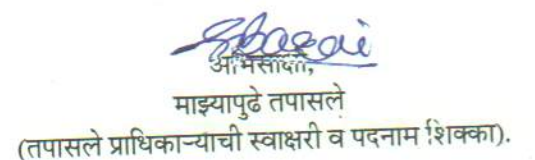 अभिसाक्षी,
माझ्यापुढे तपासले
(तपासले प्राधिकाऱ्याची स्वाक्षरी व पदनाम शिक्का).